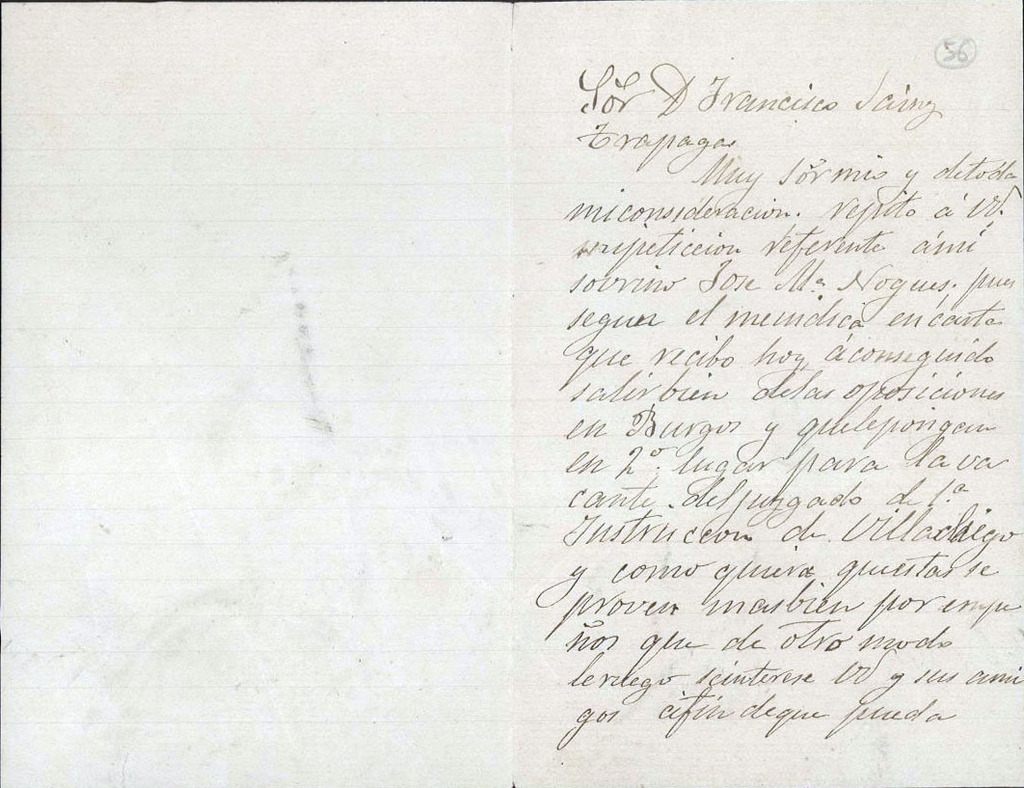 56
Sor D Francisco Sainz
Trapaga.
Muy Sor mio y detoda
miconsideracion. repito á Vd.
mipeticcion referente ámi
sovrino Jose Mª Nogues. pues
segun el meindica encarta
que recibo hoy, áconseguido
salirbien delas oposiciones
en Burgos y quelepongan
en 2º lugar para la va
cante deljuzgado de 1ª
Instruccion de Villadiego
y como quiera questas se
proven masbien por empe
ños que de otro modo
leruego seinterese Vd y sus ami
gos áfin deque pueda